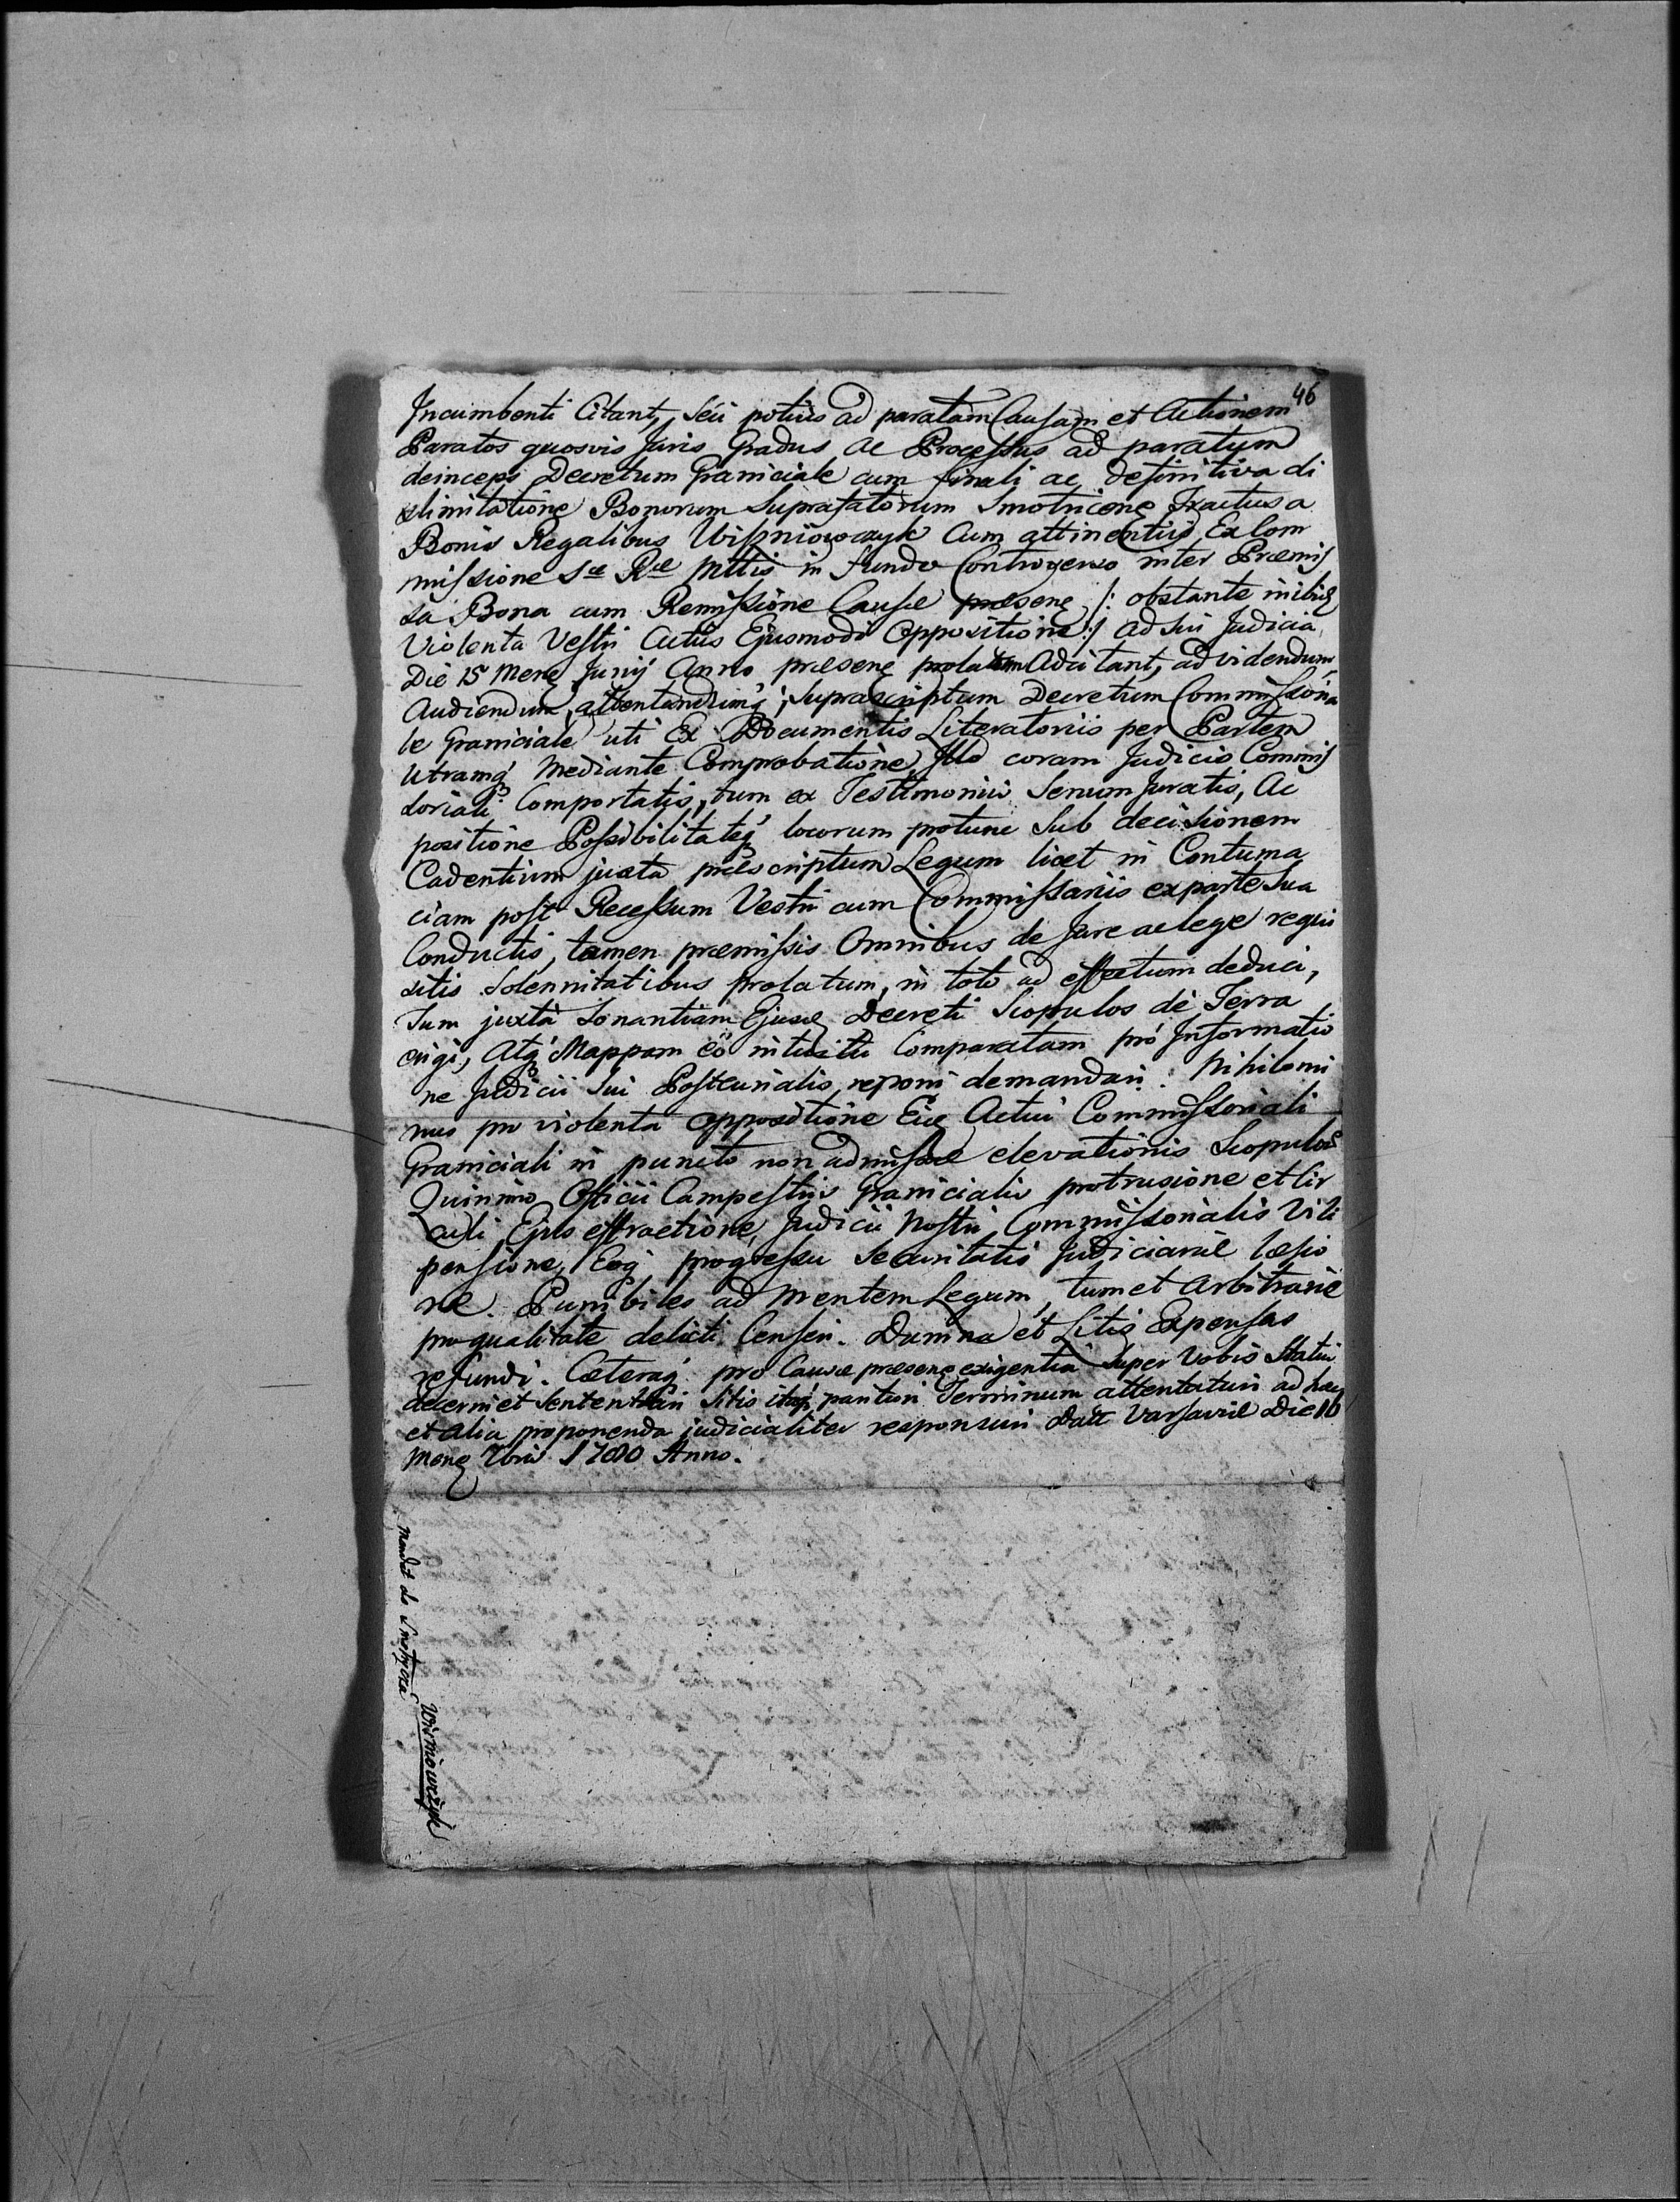 46
Incumbenti Citant, Séu potius ad paratam Causam et Actionem
Paratos quosvis Juris Gradus ac Processus ad paratum
deinceps Decretum Graniciale cum finali ac definitiva di
slimitatione Bonorum Suprafatorum Smotricenę Tractus a
Bonis Regalibus Wiszniowczyk Cum attinentiis, Ex Com
missione Sæ Ræ Mttis in fundo Controverso inter Præmis
sa Bona cum Remissione Causæ præsenę /: obstante inibię
Violenta Vestri Actus Ejusmodi Oppositione :/ ad Sui Judicia,
Die 15 Menę Junij Anno præsenę prolatum Adcitant, ad videndum,
Audiendum, attentandumq; Suprascriptum Decretum Commissiona
le Graniciale uti Ex Documentis Literatoriis per Partem
Utramq; Mediante Comprobatione Illo coram Judicio Commis
soriali Comportatis, tum ex Testimoniis Senum Juratis, Ac
positione Possibilitateq; locorum protunc Sub decisionem
Cadentium juxta præscriptum Legum licet in Contuma
ciam post Recessum Vestri cum Commissariis ex parte Sua
Conductis, tamen præmissis Omnibus de Jure ac lege requi
sitis Solennitatibus prolatum, in toto ad effectum deduci,
Tum juxta Sonantiam Ejusdę Decreti Scopulos de Terra
erigi, Atq; Mappam eo intuitu Comparatam pro Informatio
ne Judicii Sui Postcurialis reponi demandari: Nihilomi
nus pro violenta oppositione Eidę Actui Commissoriali
Graniciali in puncto non admissæ elevationis Scopulor̃
Quinimo Officii Campestris Granicialis protrusione et Cir
culi Ejus effractione, Judicii Nostri Commissorialis Vili
pensione, Eoq; progressu Securitatis judiciariæ læsio
ne. Punibiles ad Mentem Legum, tum et Arbitrarie
pro qualitate delicti Censeri. Damna et Litis Expensas
refundi. Cæteraq; pro Causæ præsenę exigentia Super Vobis Statui
decerni et Sententiari Sitis itaq; parituri Terminum attentaturi ad hæc
et alia proponenda judicialiter responsuri Datt Varsaviæ Die 10
Menę 7bris 1780 Anno.
Mandat do Smotrycza
Wiśniowczyk